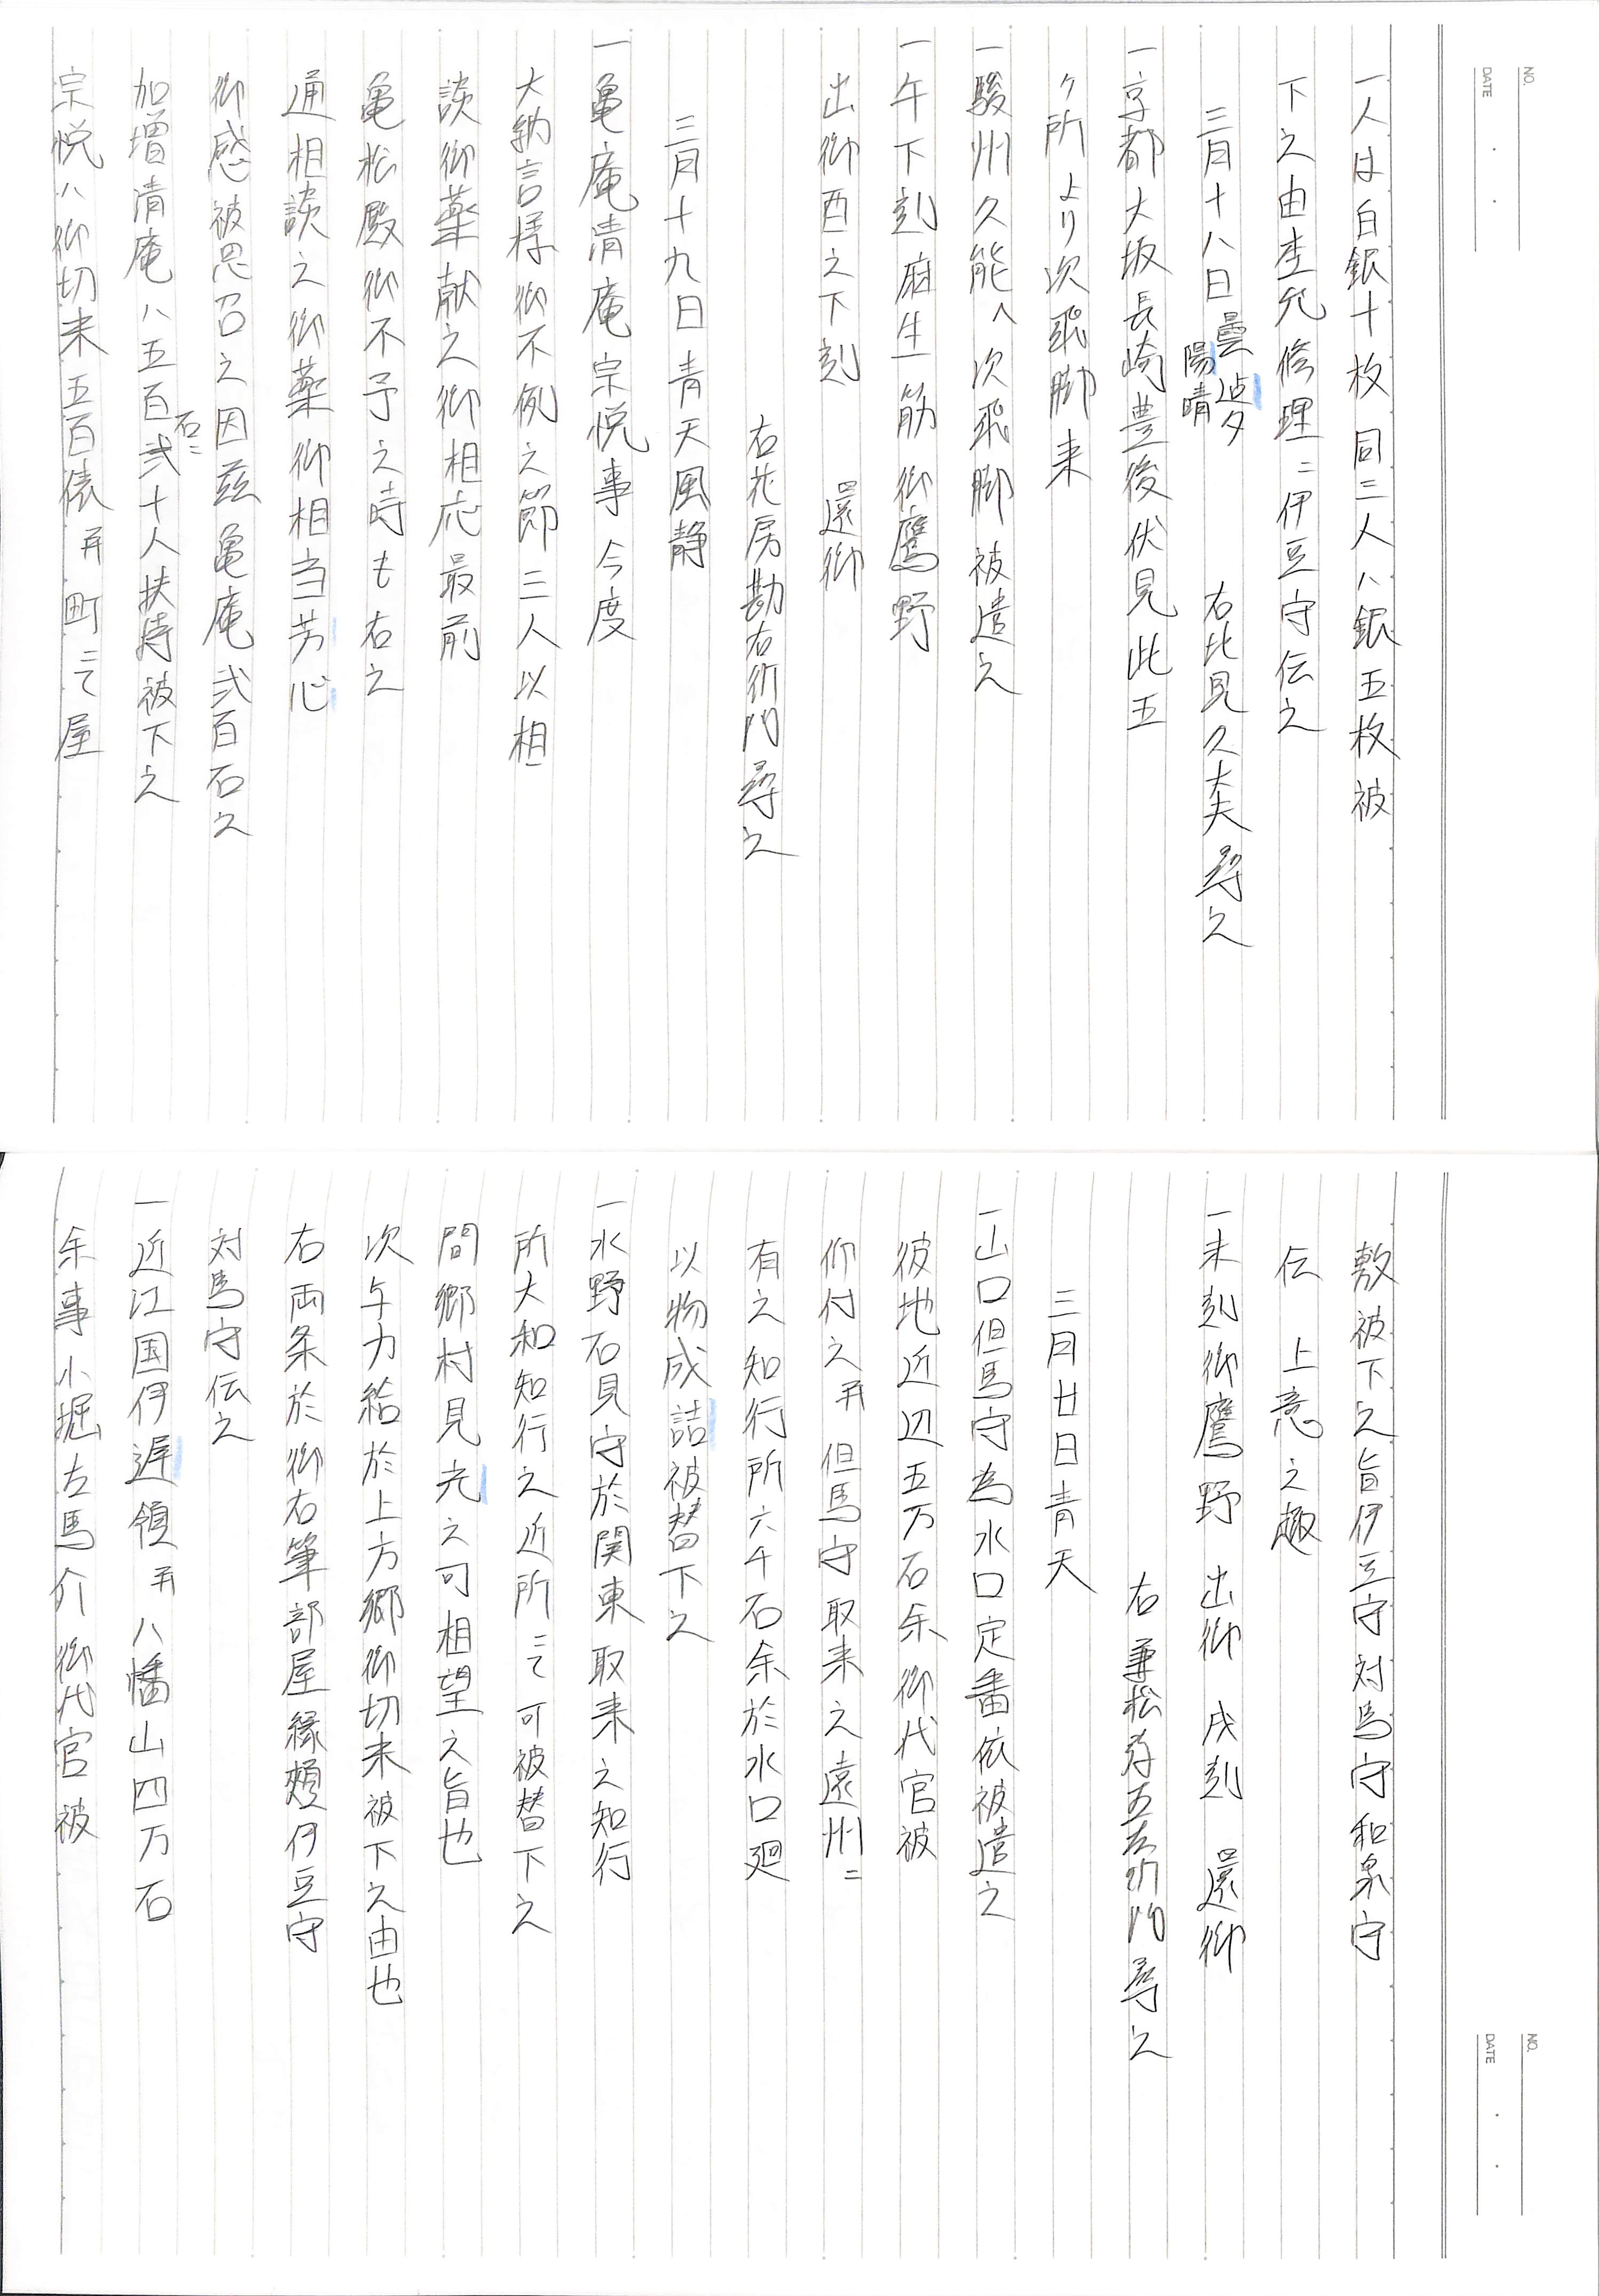 NO.
DATE
一人は白銀十枚同三人ハ銀五枚被
下之由杢允修理ニ伊豆守伝之
三月十八日曇
陽晴 右比見久太夫尋之
一京都大坂長崎豊後伏見此五
ケ所より次飛脚来
一駿州久能へ次飛脚被遣之
一午下刻麻生筋御鷹野
出御酉之下刻 還御
右花房勘右衛門尋之
三月十九日青天風静
一亀庵清庵宗悦事今度
大納言様御不例之節三人以相
談御薬献之御相応最前
亀松殿御不予之時も右之
通相談之御薬御相当芳心
御感被思召之因茲亀庵弐百石之
加増清庵ハ五百石ニ弐十人扶持被下之
宗悦ハ御切米五百俵并町ニて屋
NO.
DATE
敷被下之旨伊豆守対馬守和泉守
伝 上意之趣
一未刻御鷹野 出御 戌刻 還御
右兼松弥五左衛門尋之
三月廿日青天
一山口但馬守為水口定番依被遣之
彼地近辺五万石余御代官被
仰付之并但馬守取来之遠州ニ
有之知行所六千石余於水口廻
以物成詰被替下之
一水野石見守於関東取来之知行
所大和知行之近所ニて可被替下之
間郷村見充之可相望之旨也
次与力給於上方郷御切米被下之由也
右両条於御右筆部屋縁頬伊豆守
対馬守伝之
一近江国伊遅領并八幡山四万石
余事小堀左馬介御代官被